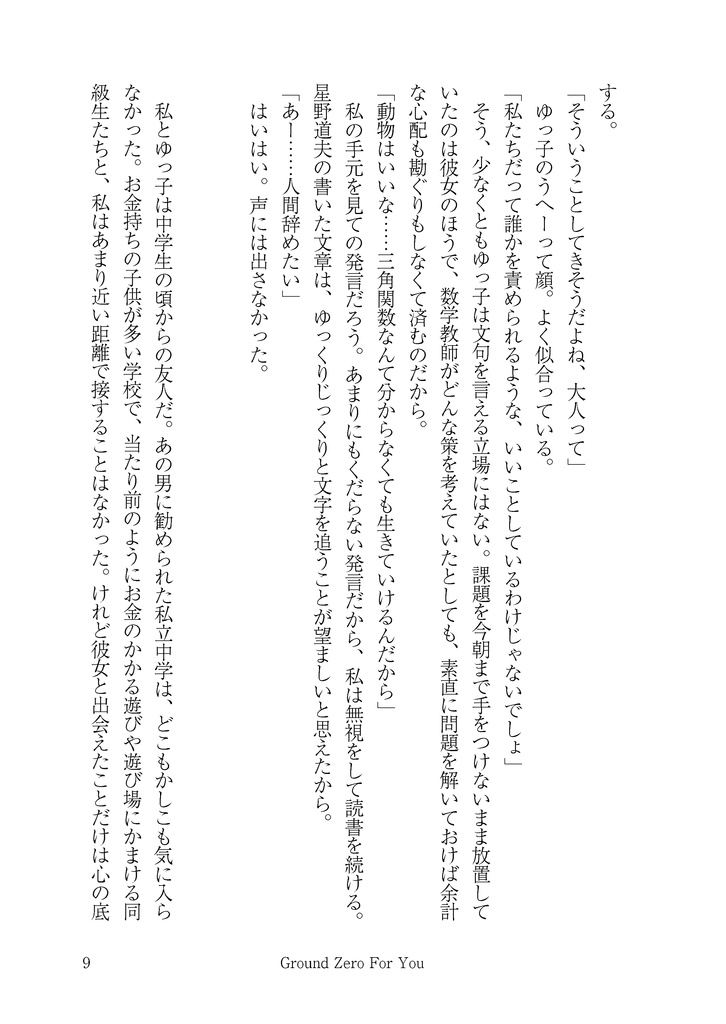 する。
「そういうことしてきそうだよね、大人って」
ゆっ子のうへーって顔。よく似合っている。
「私たちだって誰かを責められるような、いいことしているわけじゃないでしょ」
そう、少なくともゆっ子は文句を言える立場にはない。課題を今朝まで手をつけないまま放置して
いたのは彼女のほうで、数学教師がどんな策を考えていたとしても、素直に問題を解いておけば余計
な心配も勘ぐりもしなくて済むのだから。
「動物はいいな……三角関数なんて分からなくても生きていけるんだから」
私の手元を見ての発言だろう。あまりにもくだらない発言だから、私は無視をして読書を続ける。
星野道夫の書いた文章は、ゆっくりじっくりと文字を追うことが望ましいと思えたから。
「あー……人間辞めたい」
はいはい。声には出さなかった。
私とゆっ子は中学生の頃からの友人だ。あの男に勧められた私立中学は、どこもかしこも気に入ら
なかった。お金持ちの子供が多い学校で、当たり前のようにお金のかかる遊びや遊び場にかまける同
級生たちと、私はあまり近い距離で接することはなかった。けれど彼女と出会えたことだけは心の底
9
Ground Zero For You